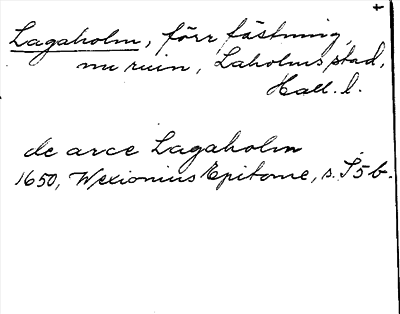 +
Lagaholm, förr fästning,
nu ruin, Laholms stad,
Hall. l.
de arce Lagaholm
1650, Wexionius Epitome, s. I5b.